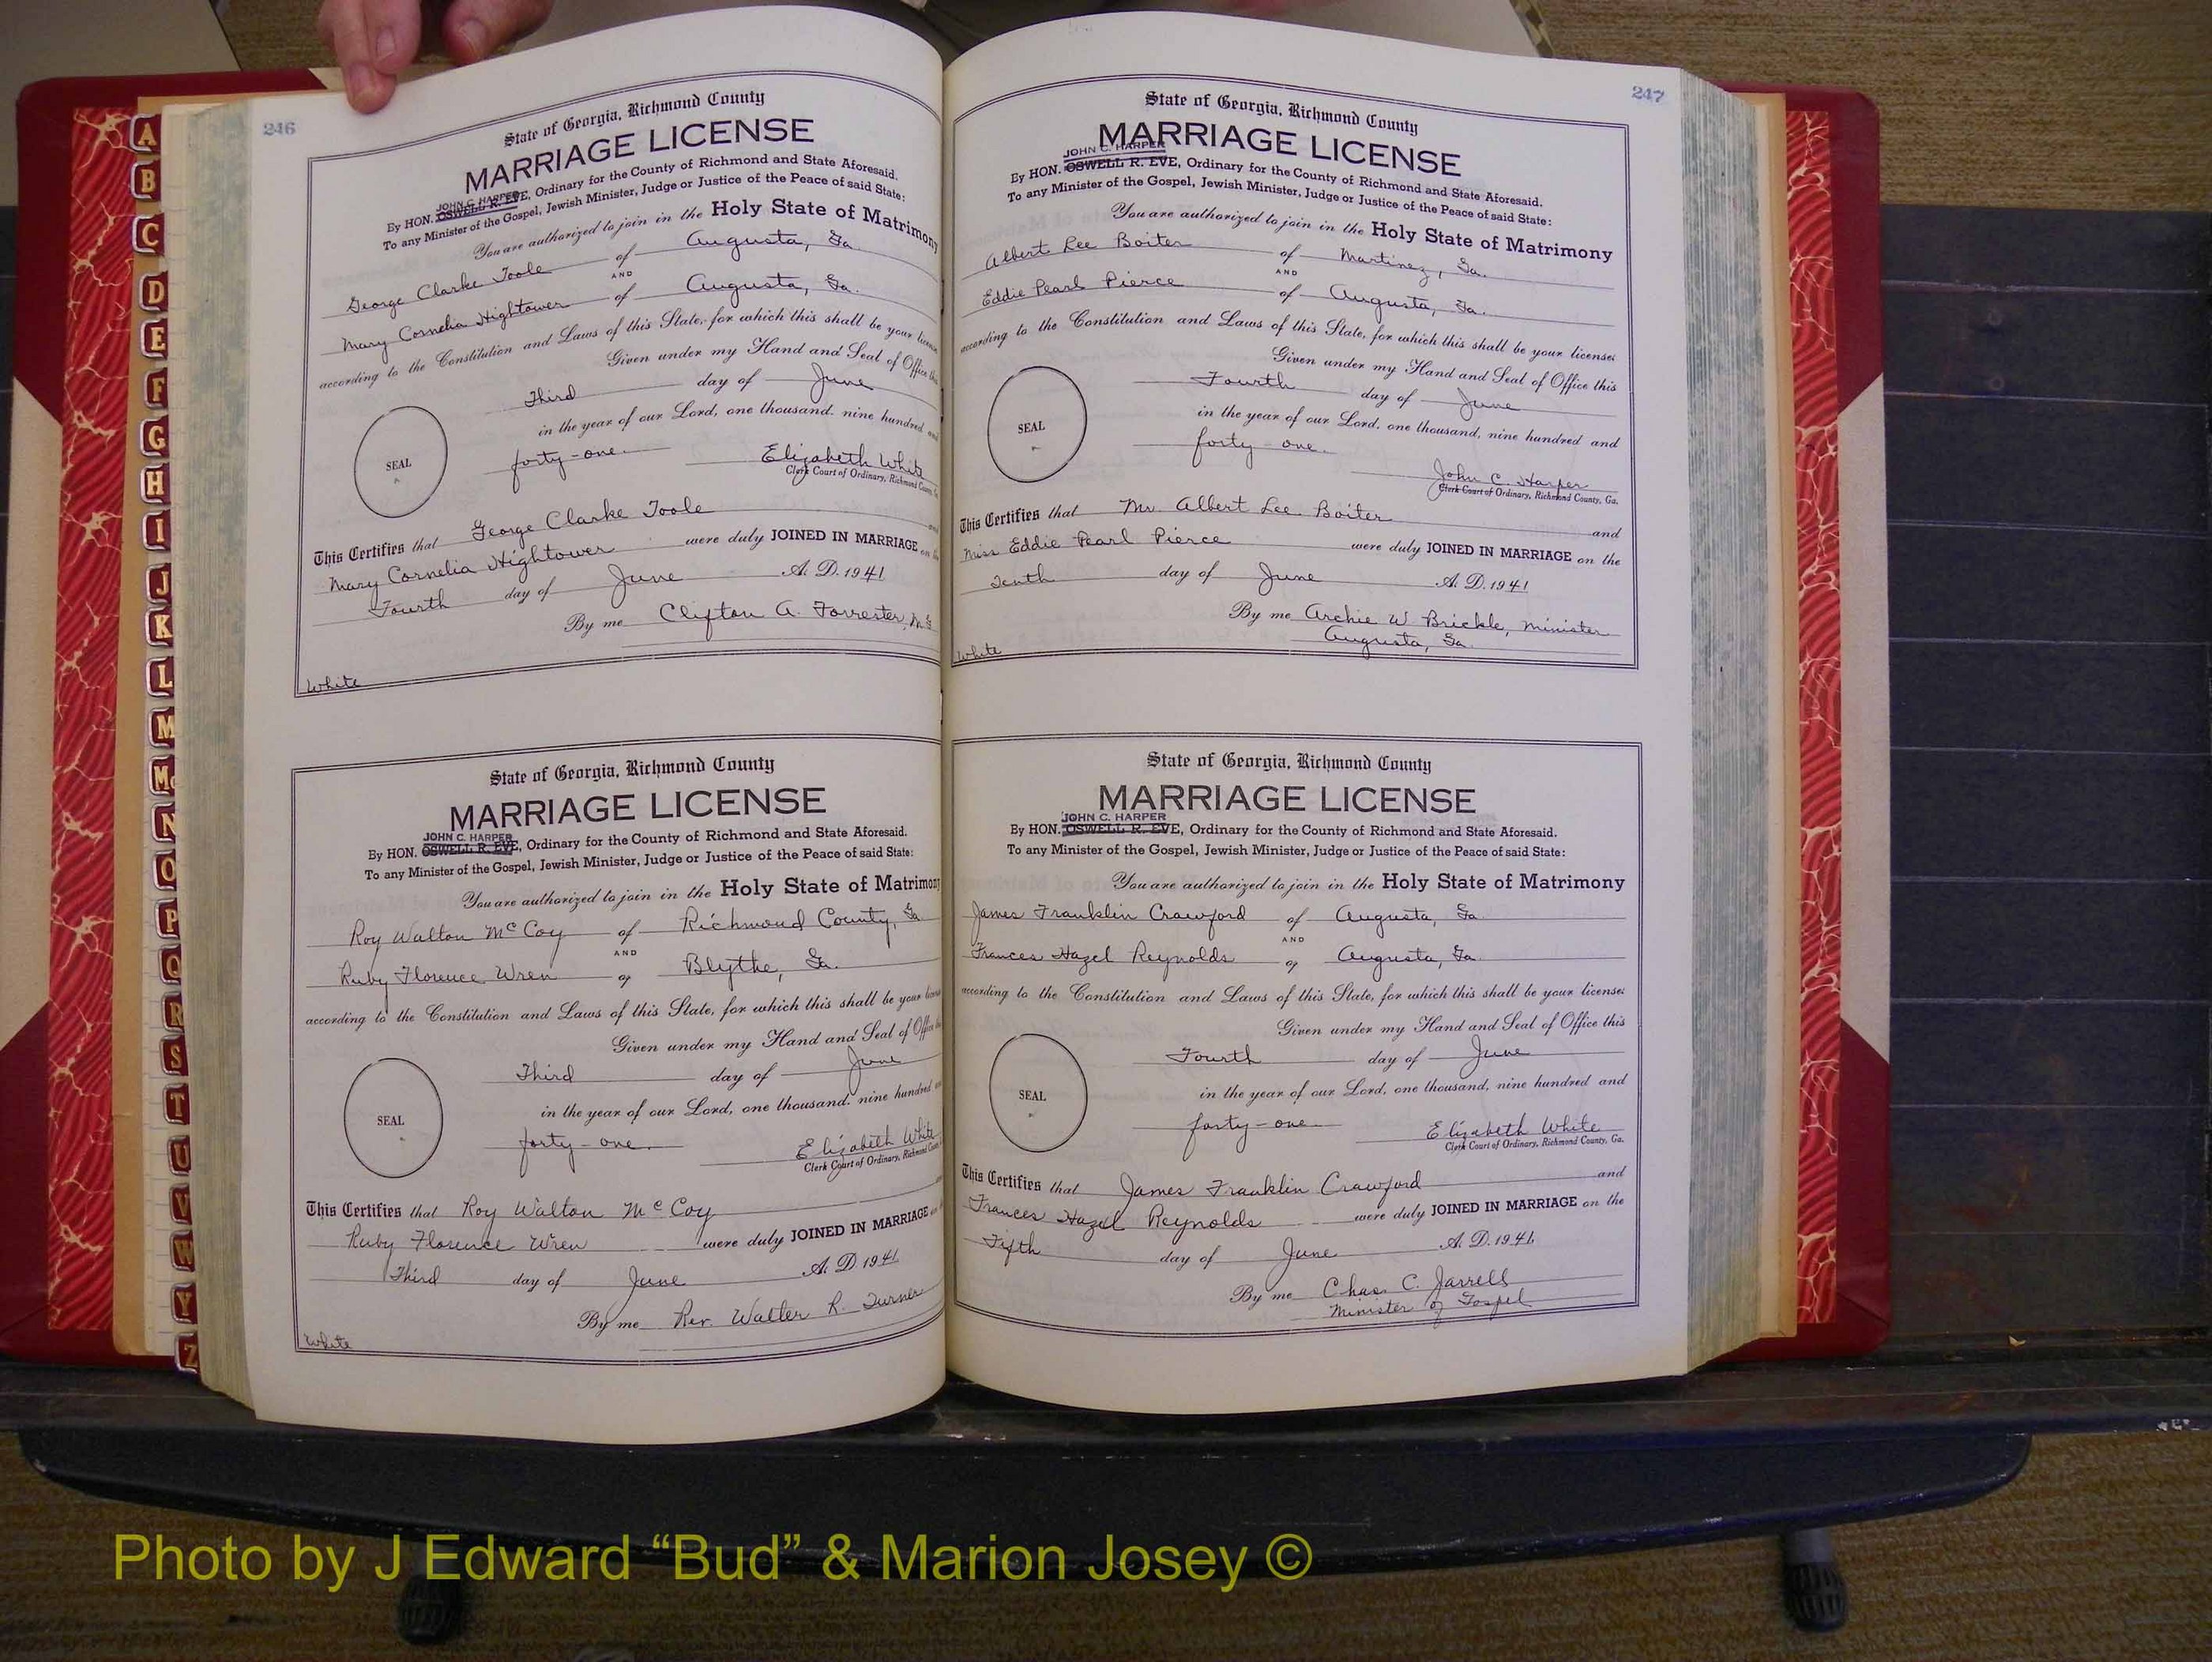 246
State of Georgia, Richmond County
MARRIAGE LICENSE
JOHN C. HARPER
By HON. OSWELL R. EVE, Ordinary for the County of Richmond and State Aforesaid.
To any Minister of the Gospel, Jewish Minister, Judge or Justice of the Peace of said State:
You are authorized to join in the Holy State of Matrimony
George Clarke Toole of Augusta, Ga.
AND
Mary Cornelia Hightower of Augusta, Ga.
according to the Constitution and Laws of this State, for which this shall be your license
Given under my Hand and Seal of Office this
Third day of June
in the year of our Lord, one thousand, nine hundred and
SEAL
forty-one. Elizabeth White
Clerk Court of Ordinary, Richmond County,
This Certifies that George Clarke Toole and
Mary Cornelia Hightower were duly JOINED IN MARRIAGE on the
Fourth day of June A. D. 1941
By me Clifton A. Forrester, M.G.
White
State of Georgia, Richmond County
MARRIAGE LICENSE
JOHN C. HARPER
By HON. OSWELL R. EVE, Ordinary for the County of Richmond and State Aforesaid.
To any Minister of the Gospel, Jewish Minister, Judge or Justice of the Peace of said State:
You are authorized to join in the Holy State of Matrimony
Roy Walton McCoy of Richmond County, Ga.
AND
Ruby Florence Wren of Blythe, Ga.
according to the Constitution and Laws of this State, for which this shall be your license
Given under my Hand and Seal of Office
Third day of June
in the year of our Lord, one thousand, nine hundred
SEAL
forty-one. Elizabeth White
Clerk Court of Ordinary, Richmond County
This Certifies that Roy Walton McCoy
Ruby Florence Wren were duly JOINED IN MARRIAGE
Third day of June A. D. 1941
By me Rev. Walter R. Turner
White
247
State of Georgia, Richmond County
MARRIAGE LICENSE
JOHN C. HARPER
By HON. OSWELL R. EVE, Ordinary for the County of Richmond and State Aforesaid.
To any Minister of the Gospel, Jewish Minister, Judge or Justice of the Peace of said State:
You are authorized to join in the Holy State of Matrimony
Albert Lee Boiter of Martinez, Ga.
AND
Eddie Pearl Pierce of Augusta, Ga.
according to the Constitution and Laws of this State, for which this shall be your license:
Given under my Hand and Seal of Office this
Fourth day of June
in the year of our Lord, one thousand, nine hundred and
SEAL
forty-one.
John C. Harper
Clerk Court of Ordinary, Richmond County, Ga.
This Certifies that Mr. Albert Lee Boiter and
Miss Eddie Pearl Pierce were duly JOINED IN MARRIAGE on the
Tenth day of June A. D. 1941
By me Archie W. Brickle, Minister
Augusta, Ga.
White
State of Georgia, Richmond County
MARRIAGE LICENSE
JOHN C. HARPER
By HON. OSWELL R. EVE, Ordinary for the County of Richmond and State Aforesaid.
To any Minister of the Gospel, Jewish Minister, Judge or Justice of the Peace of said State:
You are authorized to join in the Holy State of Matrimony
James Franklin Crawford of Augusta, Ga.
AND
Frances Hazel Reynolds of Augusta, Ga.
according to the Constitution and Laws of this State, for which this shall be your license:
Given under my Hand and Seal of Office this
Fourth day of June
in the year of our Lord, one thousand, nine hundred and
SEAL
forty-one. Elizabeth White
Clerk Court of Ordinary, Richmond County, Ga.
This Certifies that James Franklin Crawford and
Frances Hazel Reynolds were duly JOINED IN MARRIAGE on the
Fifth day of June A. D. 1941
By me Chas. C. Jarrell
Minister of Gospel
A
B
C
D
E
F
G
H
I
J
K
L
M
Mc
N
O
P
Q
R
S
T
U
V
W
Y
Z
Photo by J Edward “Bud” & Marion Josey ©